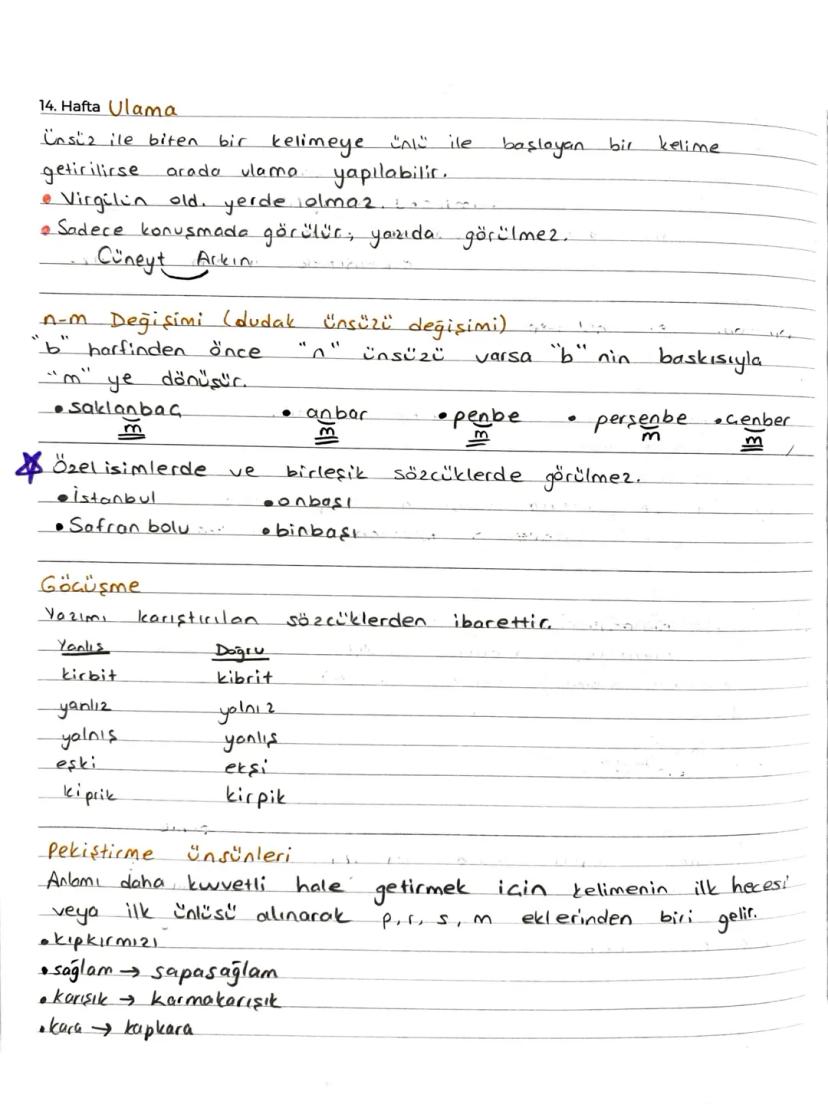 14. Hafta Ulama
Ünsüz ile biten bir kelimeye ünlü ile başlayan bir kelime
getirilirse arada ulama yapılabilir.
• Virgülün old. yerde olmaz.
• Sadece konuşmada görülür, yazıda görülmez.
Cüneyt Arkın
n-m Değişimi (dudak ünsüzü değişimi)
"b" harfinden önce "n" ünsüzü varsa "b" nin baskısıyla
"m" ye dönüşür.
• saklanbaç • anbar • penbe • perşenbe • çenber
m m m m m
Özel isimlerde ve birleşik sözcüklerde görülmez.
• İstanbul • onbaşı
• Safran bolu • binbaşı
Göçüşme
Yazımı karıştırılan sözcüklerden ibarettir.
Yanlış Doğru
kirbit kibrit
yanlız yalnız
yalnış yanlış
eşki ekşi
kiprik kirpik
Pekiştirme ünsünleri
Anlamı daha kuvvetli hale getirmek için kelimenin ilk hecesi
veya ilk ünlüsü alınarak p, r, s, m eklerinden biri gelir.
• kıpkırmızı
• sağlam → sapasağlam
• karışık → karmakarışık
• kara → kapkara